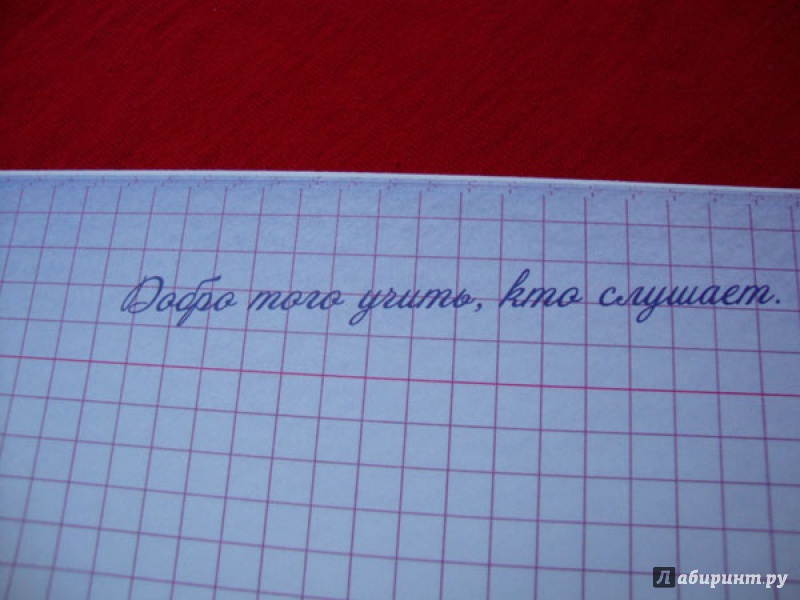 Добро того учить, кто слушает.
Лабиринт.ру